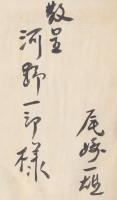 敬呈
河野一郎様
尾崎一雄